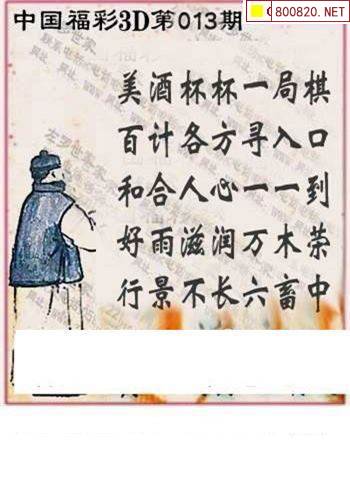 中国福彩3D第013期
800820.NET
美酒杯杯一局棋
百计各方寻入口
和合人心一一到
好雨滋润万木荣
行景不长六畜中